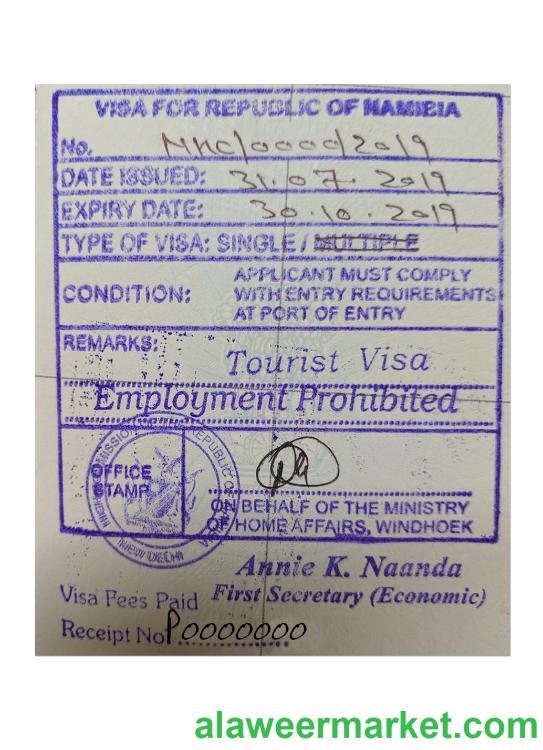 VISA FOR REPUBLIC OF NAMIBIA
No. NHC/0000/2019
DATE ISSUED: 31.07.2019
EXPIRY DATE: 30.10.2019
TYPE OF VISA: SINGLE / MULTIPLE
CONDITION: APPLICANT MUST COMPLY
WITH ENTRY REQUIREMENTS
AT PORT OF ENTRY
REMARKS:
Tourist Visa
Employment Prohibited
OFFICE
STAMP
HIGH COMMISSION
REPUBLIC OF
NEW DELHI
ON BEHALF OF THE MINISTRY
OF HOME AFFAIRS, WINDHOEK
Annie K. Naanda
Visa Fees Paid First Secretary (Economic)
Receipt No P0000000
alaweermarket.com